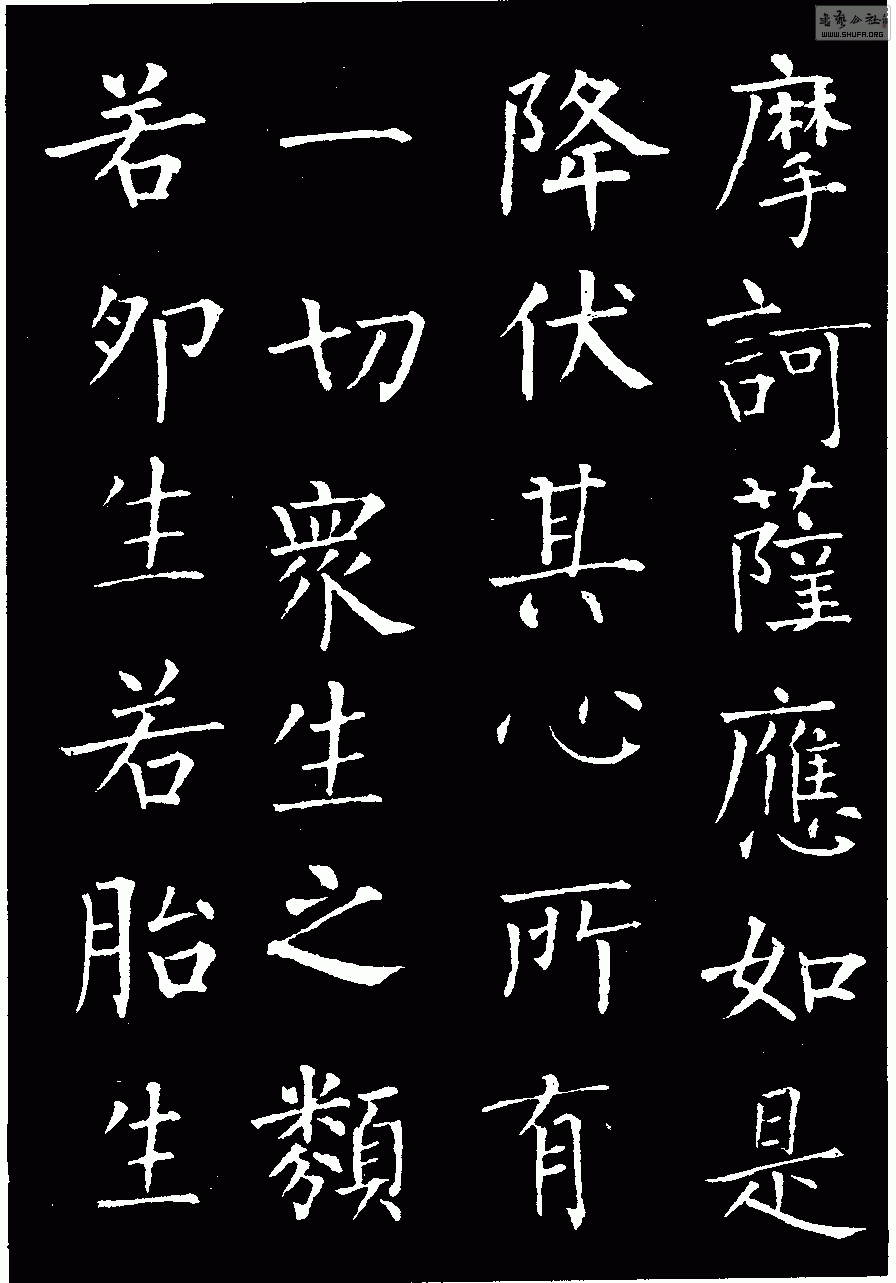 摩訶薩應如是
降伏其心所有
一切衆生之類
若卵生若胎生
WWW.SHUFA.ORG